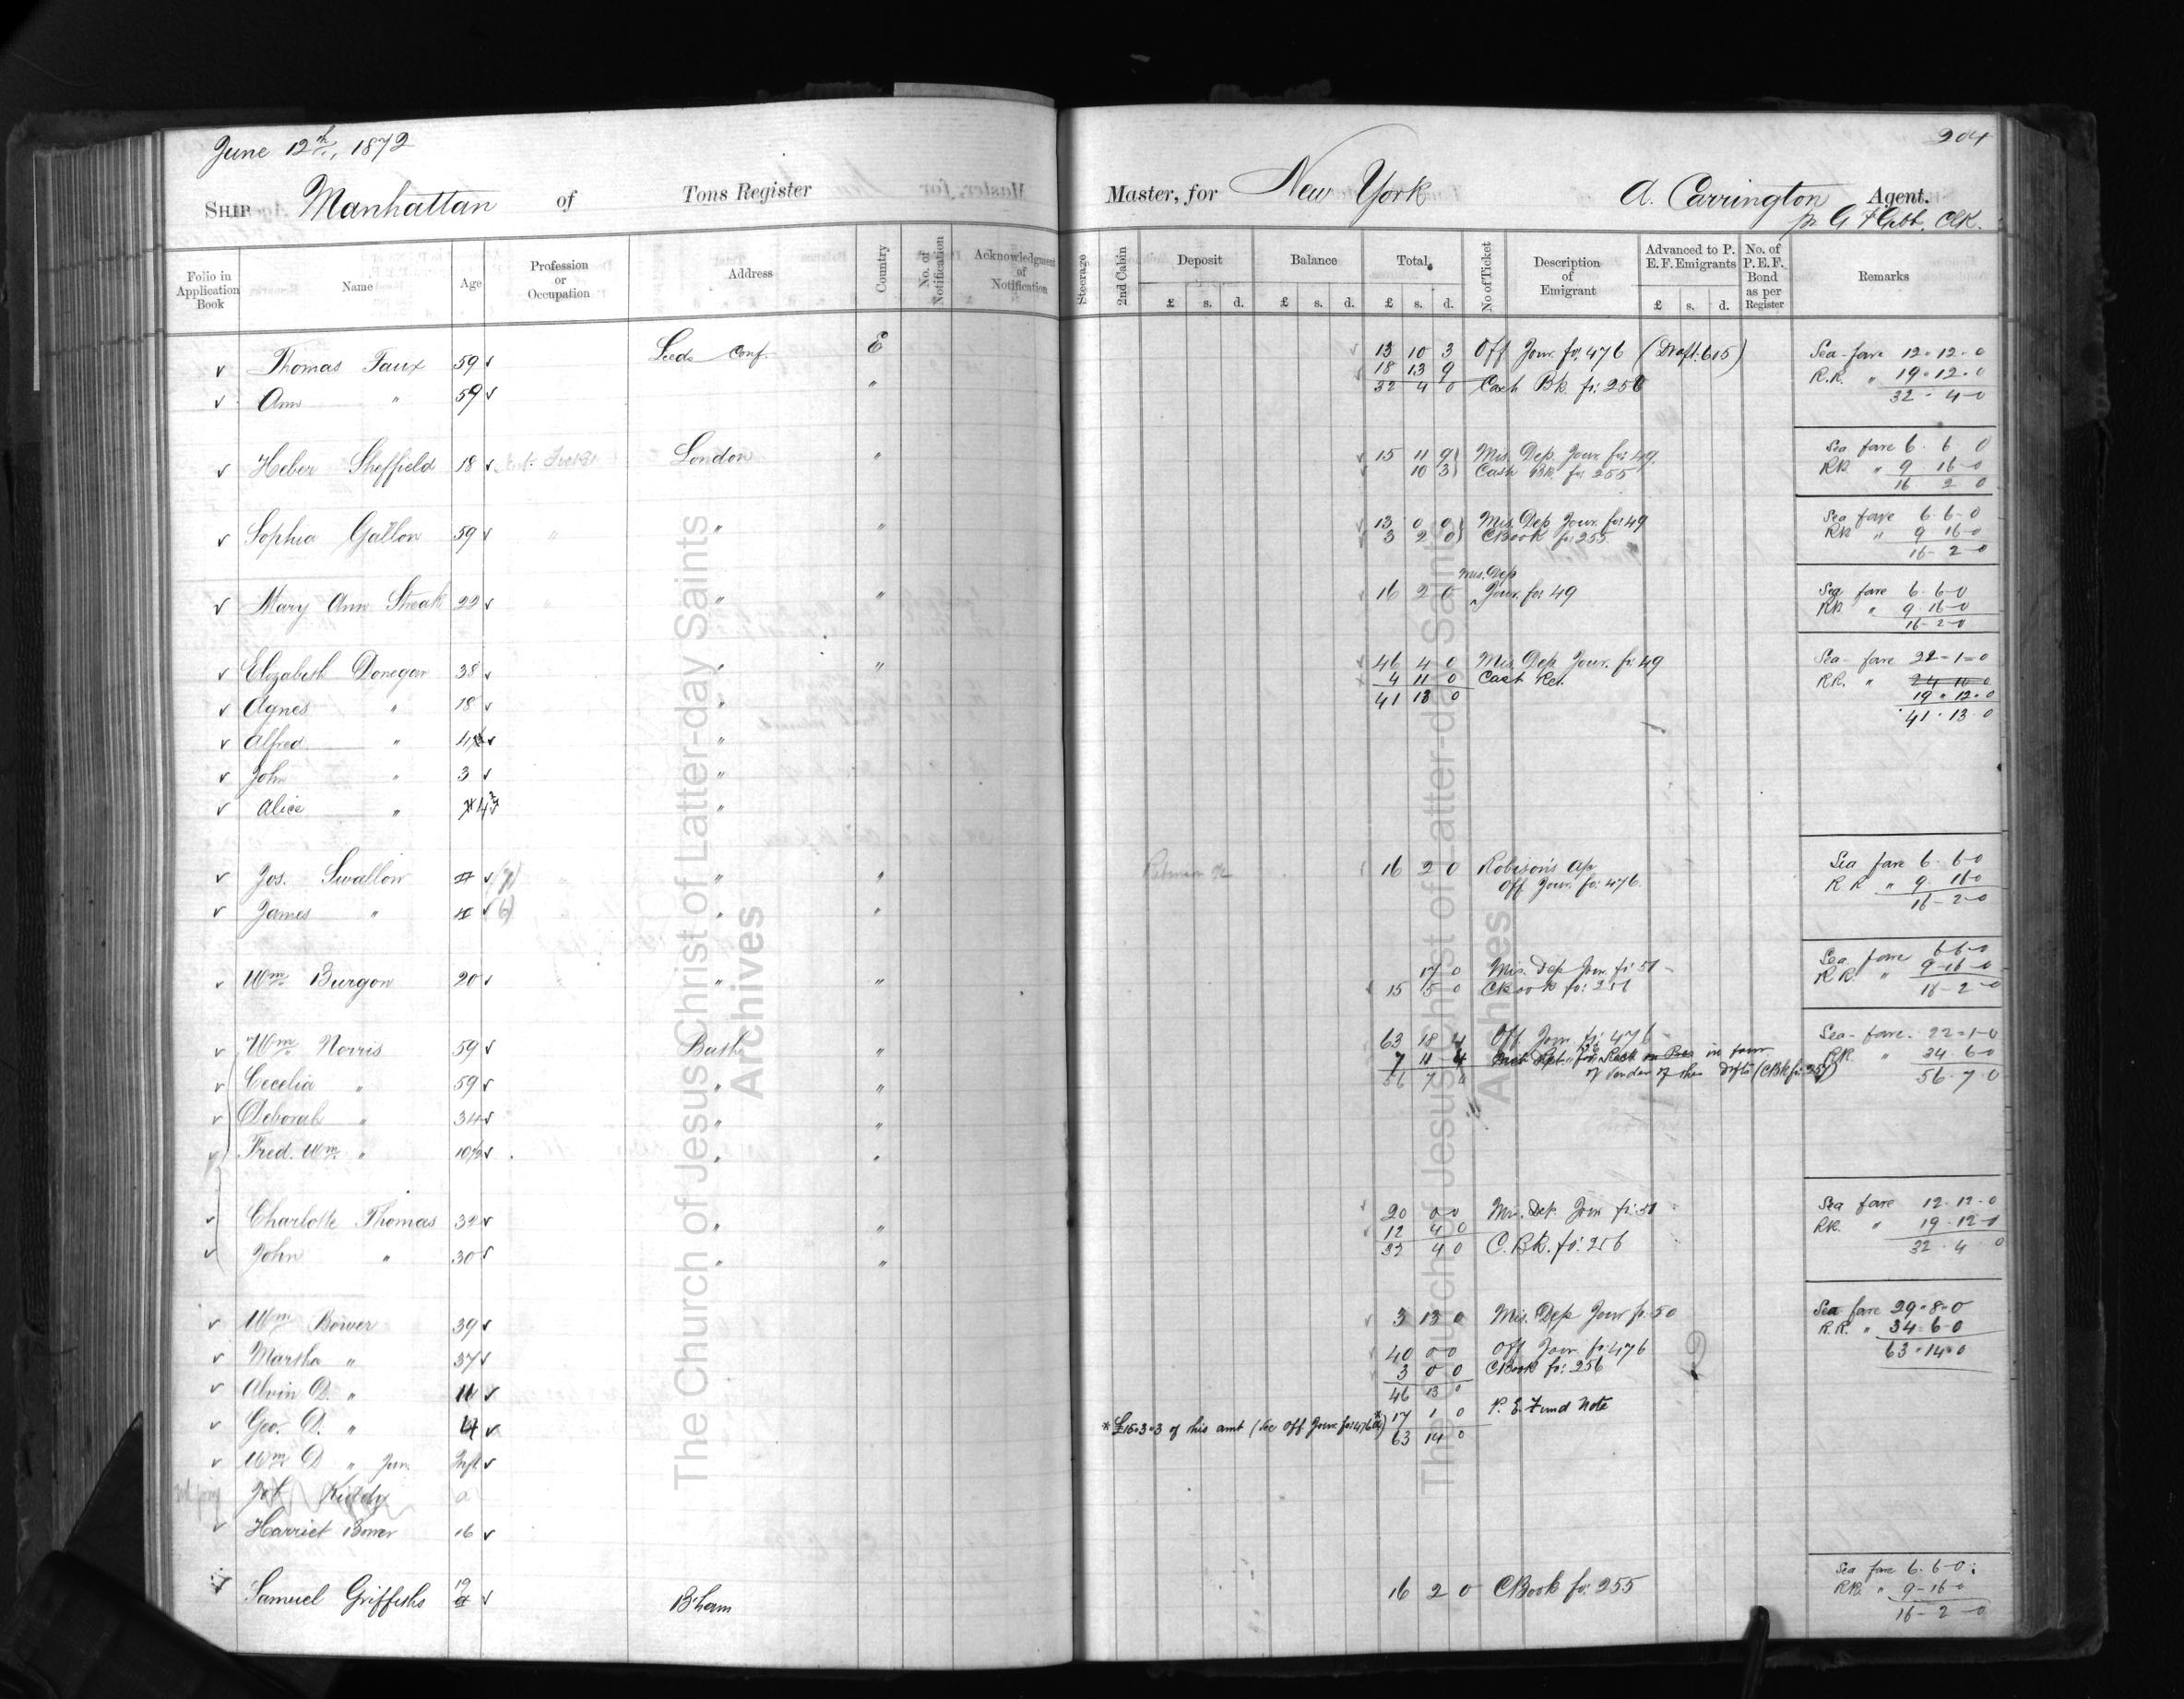 June 12th, 1872
204
SHIP Manhattan of Tons Register
Master, for New York A. Carrington Agent.
pr G F Gibbs, Clk.
Folio in Application Book Name Age Profession or Occupation Address Country No. of Notification Acknowledgment of Notification
Steerage 2nd Cabin Deposit Balance Total No of Ticket Description of Emigrant Advanced to P. E. F. Emigrants No. of P. E. F. Bond as per Register Remarks
£ s. d. £ s. d. £ s. d. £ s. d.
Thomas Faux 59 Leeds Conf. E 13 10 3 Off Jour. fo: 476 (Draft. 615) Sea-fare 12-12-0
18 13 9 R.R. " 19-12-0
Ann " 59 " 32 4 0 Cash Bk. fo: 256 32-4-0
Heber Sheffield 18 London " 15 11 9 Mis. Dep. Jour. fo: 49. Sea fare 6-6-0
10 3 Cash Bk. fo: 255 RR " 9 16-0
16 2 0
Sophia Gallon 59 " " " 13 0 0 Mis. Dep Jour. fo: 49 Sea fare 6-6-0
3 2 0 CBook fo: 255 RR " 9 16-0
16-2-0
Mis. Dep
Mary Ann Streak 22 " " " 16 2 0 Jour. fo: 49 Sea fare 6-6-0
RR " 9-16-0
16-2-0
Elizabeth Donegan 38 " " 46 4 0 Mis. Dep Jour. fo: 49 Sea-fare 22-1-0
4 11 0 Cash Ret. RR. " 24 10 0
Agnes " 18 " 41 13 0 19-12-0
41-13-0
Alfred " "
John " 3 "
Alice " "
Jos. Swallow (7) " " " 16 2 0 Robison's ap Sea fare 6-6-0
Off Jour. fo: 476. RR " 9 16-0
James " (6) " " 16-2-0
Wm Burgon 20 " " 17 0 Mis. Dep Jour. fo: 51 Sea fare 6-6-0
15 5 0 CBook fo: 256 R R. " 9-16-0
16-2-0
Wm Norris 59 Bath " 63 18 4 Off Jour. fo: 476 Sea-fare. 22-1-0
7 11 4 RR. " 34-6-0
Cecelia " 59 " " 56 7 0 56-7-0
Deborah " 34 " "
Fred. Wm. " 10½ " "
Charlotte Thomas 32 " " 20 0 0 Mis. Dep. Jour fo: 51 Sea fare 12-12-0
12 4 0 RR. " 19-12-0
John " 30 " " 32 4 0 C. Bk. fo: 256 32-4-0
Wm Bower 39 3 13 0 Mis. Dep Jour fo: 50 Sea fare 29-8-0
R.R. " 34-6-0
Marsha " 37 40 0 0 Off Jour. fo: 476 63-14-0
3 0 0 CBook fo: 256
Alvin D. " 11 46 13 0
Geo. D. " 4 17 1 0 P. E. Fund Note
* £16-3-3 of this amt (See Off Jour. fo: 476) 63 14 0
Wm D " Jun. Inft
Kiddy a
Harriet Bower 16
Samuel Griffiths 19 B'ham 16 2 0 CBook fo: 255 Sea fare 6-6-0
RR. " 9-16-0
16-2-0
The Church of Jesus Christ of Latter-day Saints
Archives
The Church of Jesus Christ of Latter-day Saints
Archives